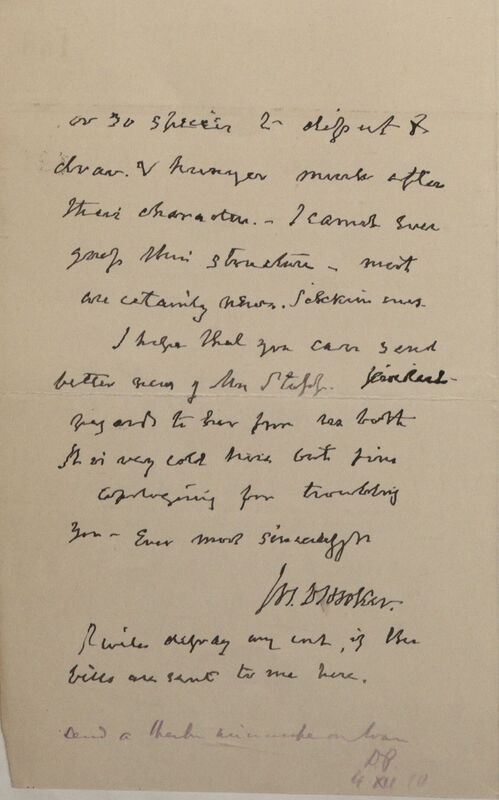 or 30 species to dissect &
draw. & hunger much after
their characters. — I cannot even
grasp their structure — most
are certainly new. Sikkim ones
I hope that you can send
better news of Mrs Stapf. Kindest
regards to her from us both
It is very cold here but fine
apologizing for troubling
you — Ever most sincerely
Jos. D Hooker.
I will defray any cost, if the
bills are sent to me here.
send a on loan
4 XII 10